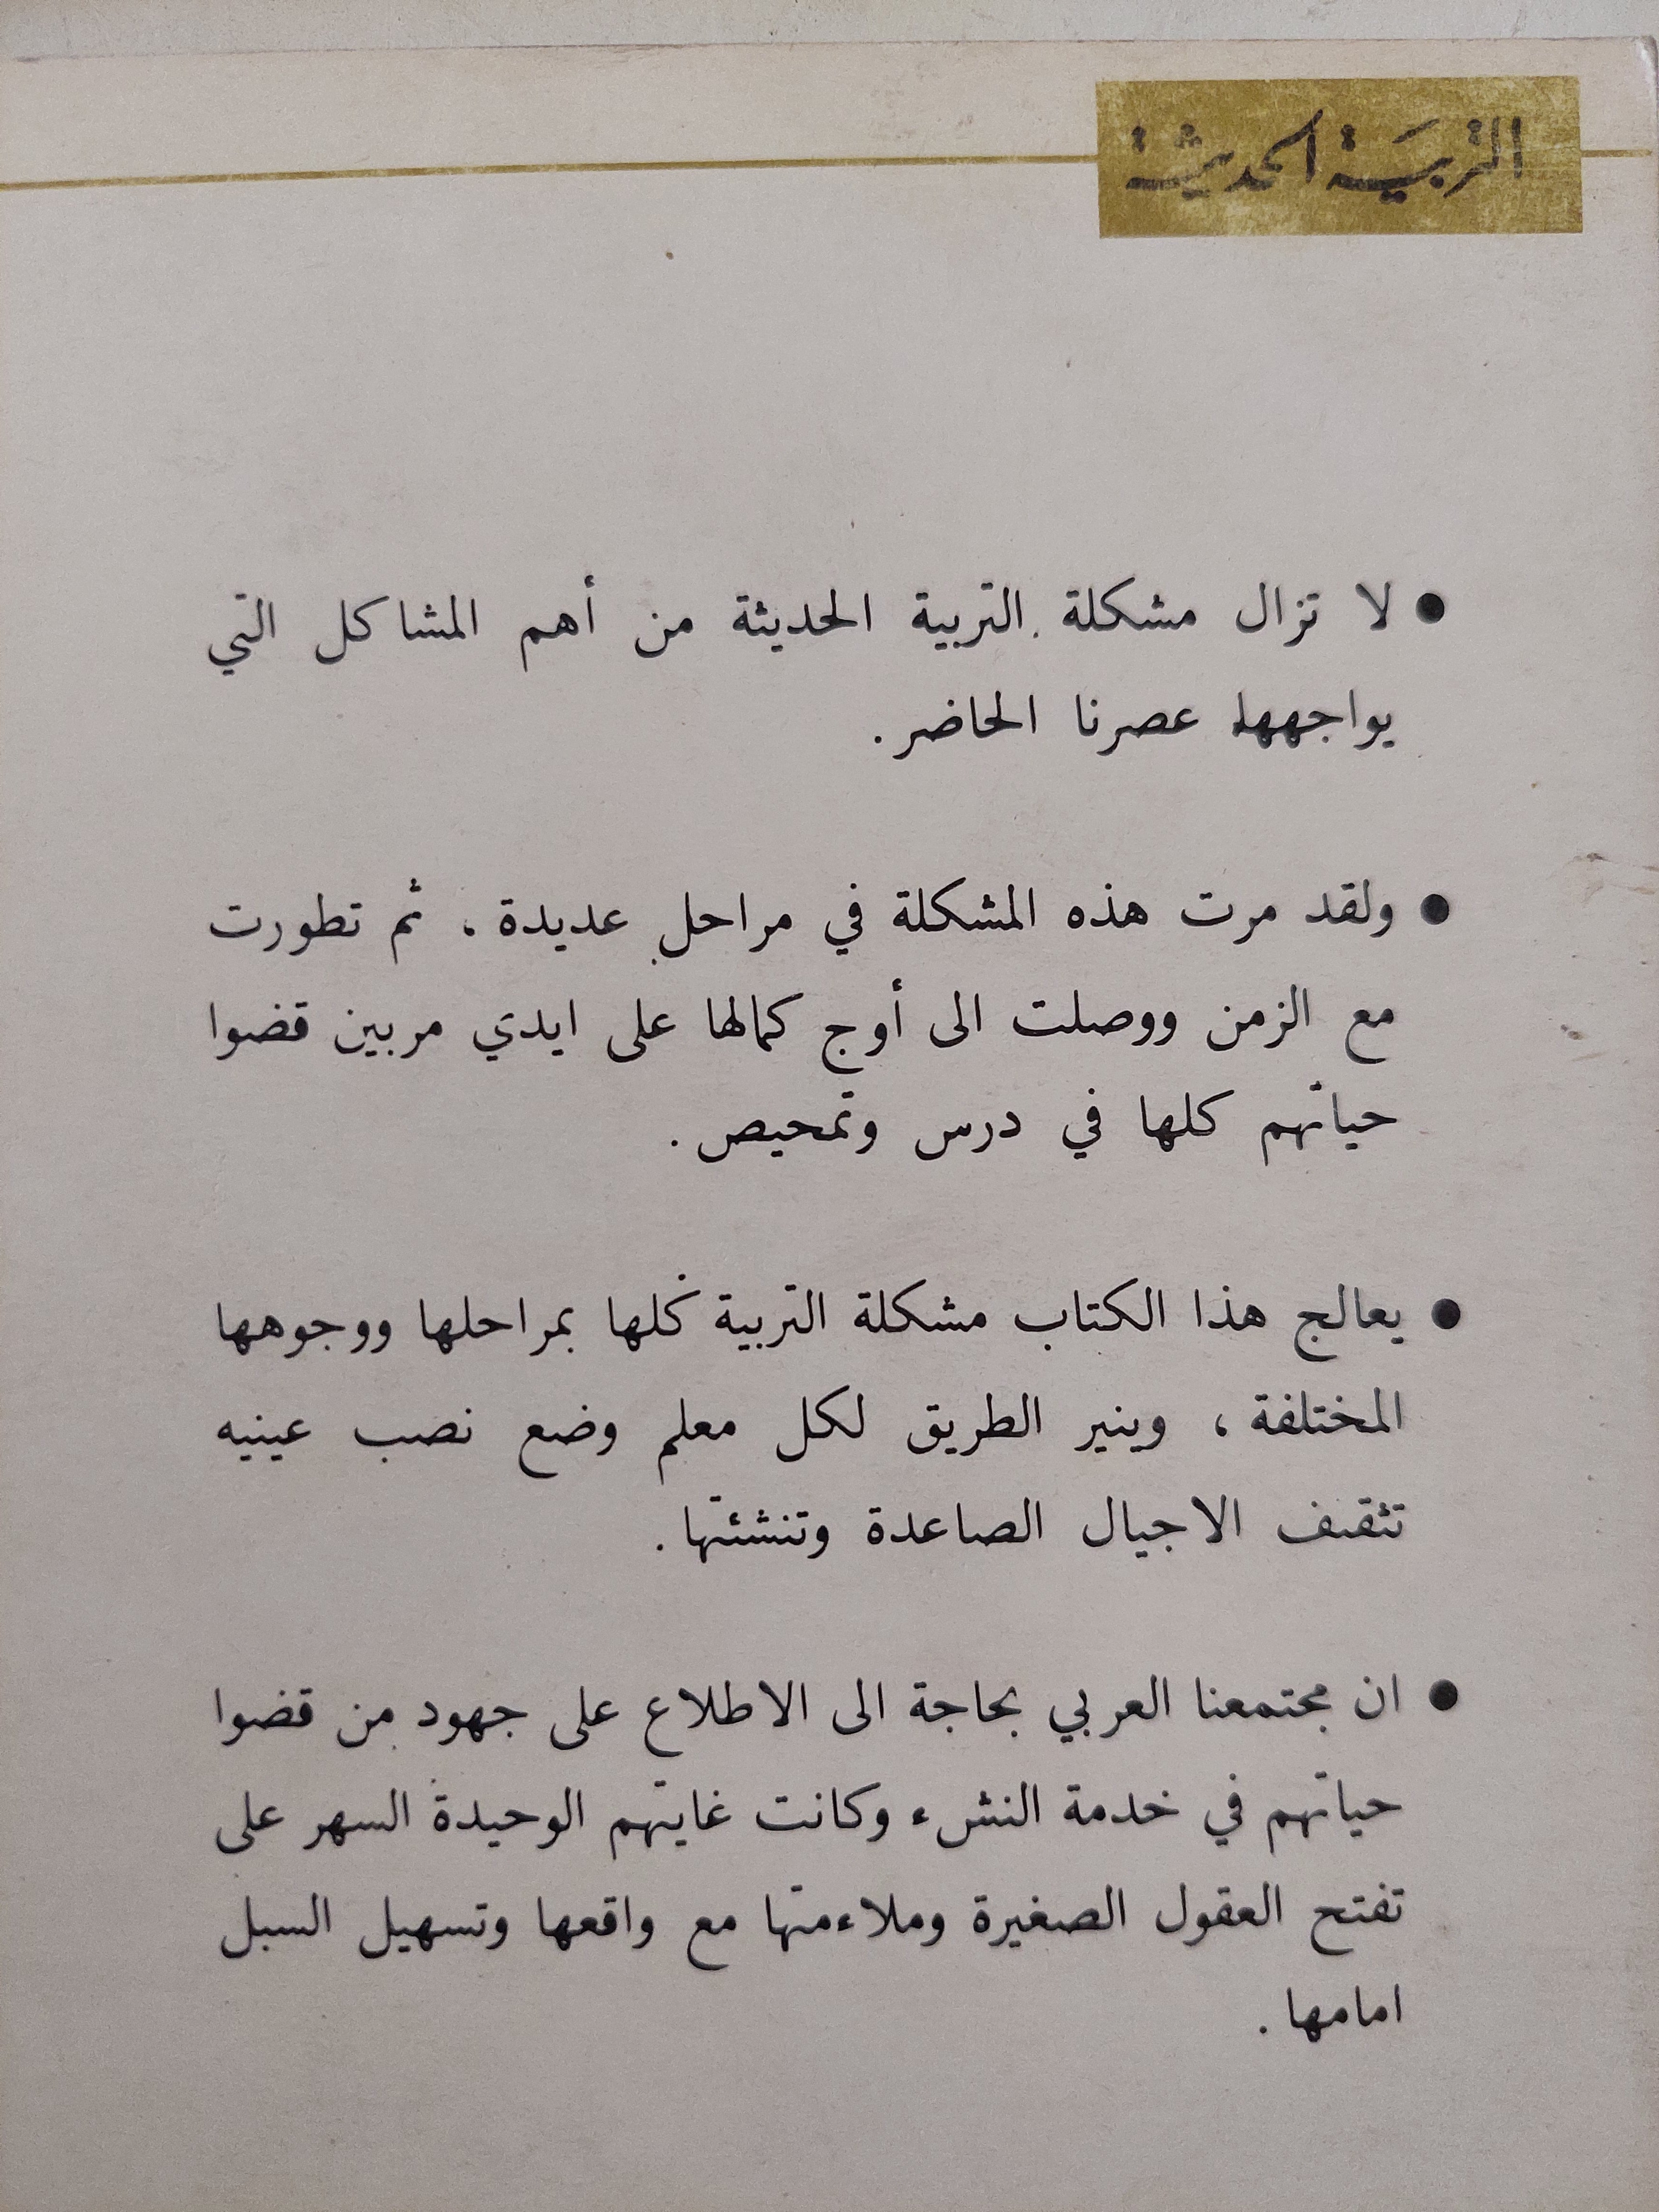 التربية الحديثة
● لا تزال مشكلة التربية الحديثة من أهم المشاكل التي
يواجهها عصرنا الحاضر .
● ولقد مرت هذه المشكلة في مراحل عديدة ، ثم تطورت
مع الزمن ووصلت الى أوج كمالها على ايدي مربين قضوا
حياتهم كلها في درس وتمحيص .
● يعالج هذا الكتاب مشكلة التربية كلها بمراحلها ووجوهها
المختلفة ، وينير الطريق لكل معلم وضع نصب عينيه
تثقيف الاجيال الصاعدة وتنشئتها .
● ان مجتمعنا العربي بحاجة الى الاطلاع على جهود من قضوا
حياتهم في خدمة النشء وكانت غايتهم الوحيدة السهر على
تفتح العقول الصغيرة وملاءمتها مع واقعها وتسهيل السبل
امامها .